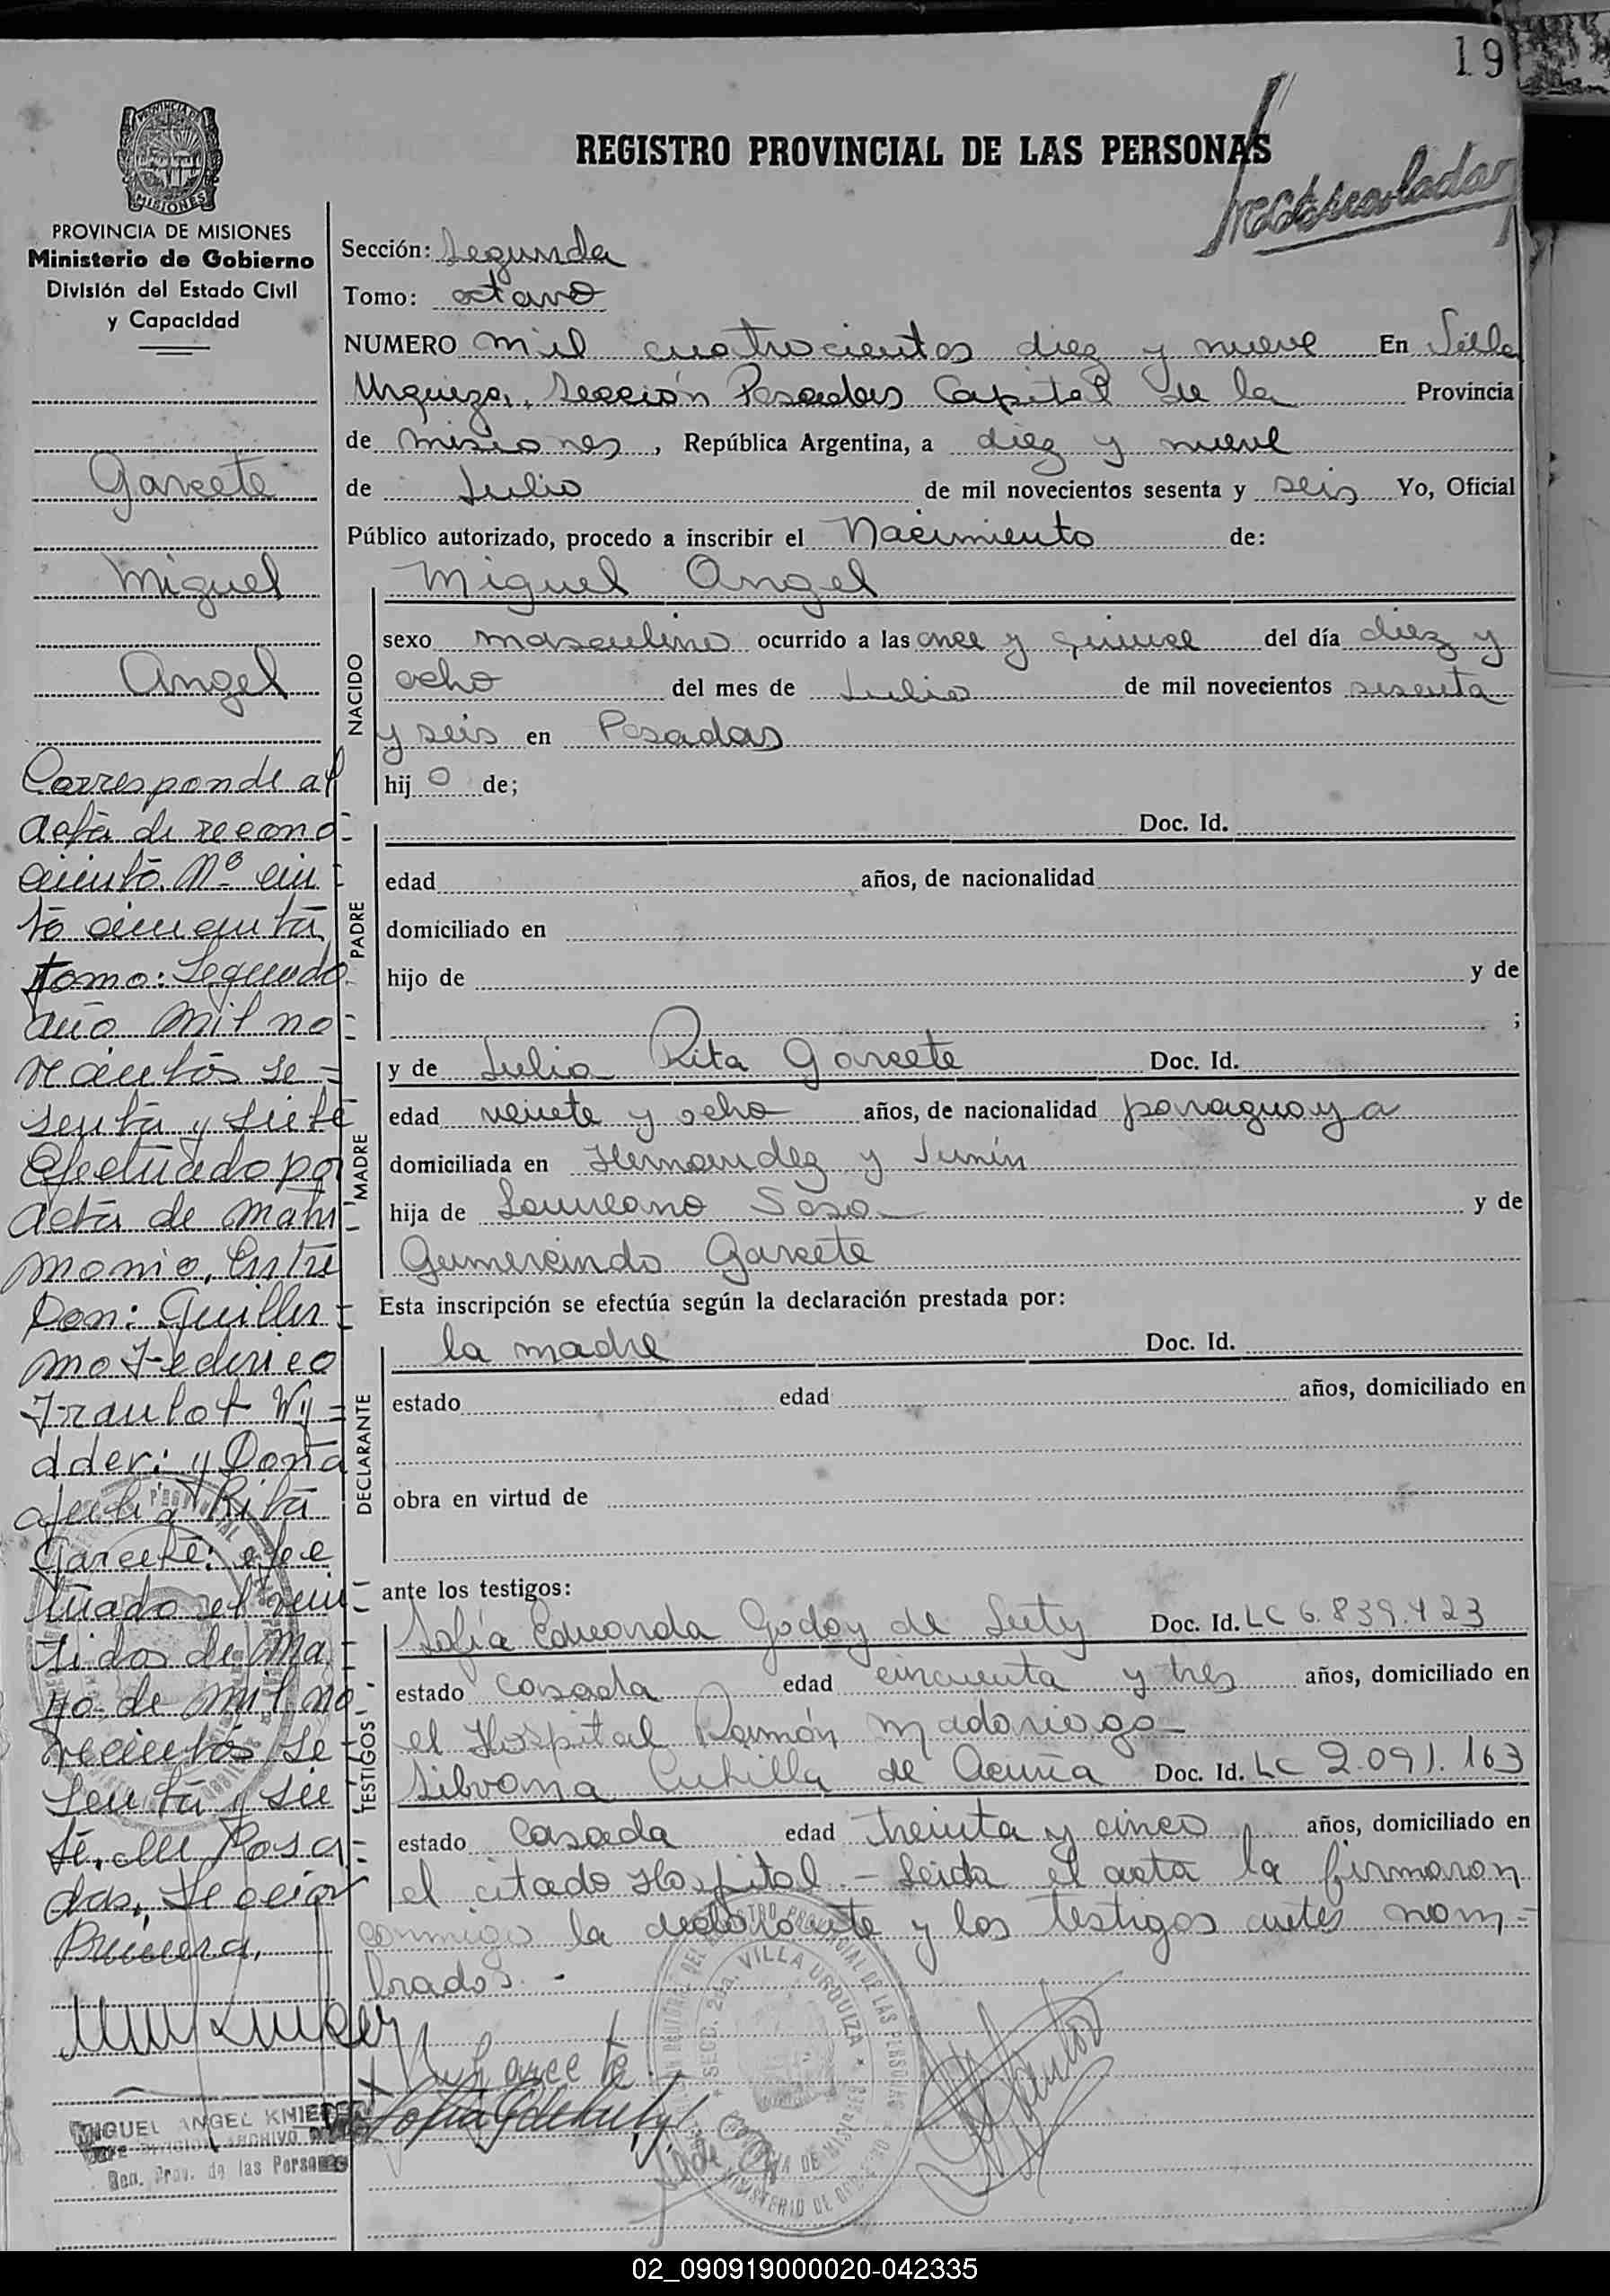 19
REGISTRO PROVINCIAL DE LAS PERSONAS
PROVINCIA DE MISIONES
PROVINCIA DE MISIONES
Ministerio de Gobierno
División del Estado Civil
y Capacidad
Garcete
Miguel
Angel
Corresponde al
acta de recono-
Nº cin-
to cincuenta
tomo: Segundo
año mil no-
vecientos se-
senta y siete
Efectuado por
acta de matri-
monio, Entre
Don: Guiller-
mo Federico
dder: y Doña
Julia Rita
Garcete: efec
tuado el vein-
ti dos de Ma-
yo de mil no-
vecientos se-
senta y sie
te, en Posa-
das, Sección
Primera.
MIGUEL ANGEL
JEFE DIVISION ARCHIVO
Reg. Prov. de las Personas
Sección: Segunda
Tomo: octavo
NUMERO mil cuatrocientos diez y nueve En Villa
Urquiza, Sección Posadas Capital de la Provincia
de misiones, República Argentina, a diez y nueve
de Julio de mil novecientos sesenta y seis Yo, Oficial
Público autorizado, procedo a inscribir el Nacimiento de:
NACIDO
Miguel Angel
sexo masculino ocurrido a las once y quince del día diez y
ocho del mes de Julio de mil novecientos sesenta
y seis en Posadas
hij o de;
PADRE
Doc. Id.
edad años, de nacionalidad
domiciliado en
hijo de y de
;
MADRE
y de Julia Rita Garcete Doc. Id.
edad veinte y ocho años, de nacionalidad paraguaya
domiciliada en Hernandez y Junin
hija de Laureano Sosa y de
Gumercinda Garcete
Esta inscripción se efectúa según la declaración prestada por:
DECLARANTE
la madre Doc. Id.
estado edad años, domiciliado en
obra en virtud de
ante los testigos:
TESTIGOS
Sofia Eduarda Godoy de Doc. Id. LC 6.839.423
estado Casada edad cincuenta y tres años, domiciliado en
el Hospital Ramón Madariaga
Silvana de Acuña Doc. Id. LC 2.091.163
estado Casada edad treinta y cinco años, domiciliado en
el citado Hospital.- Leida el acta la firmaron
conmigo la declarante y los testigos antes nom-
brados.-
SECC. 2da. VILLA URQUIZA
02_090919000020-042335